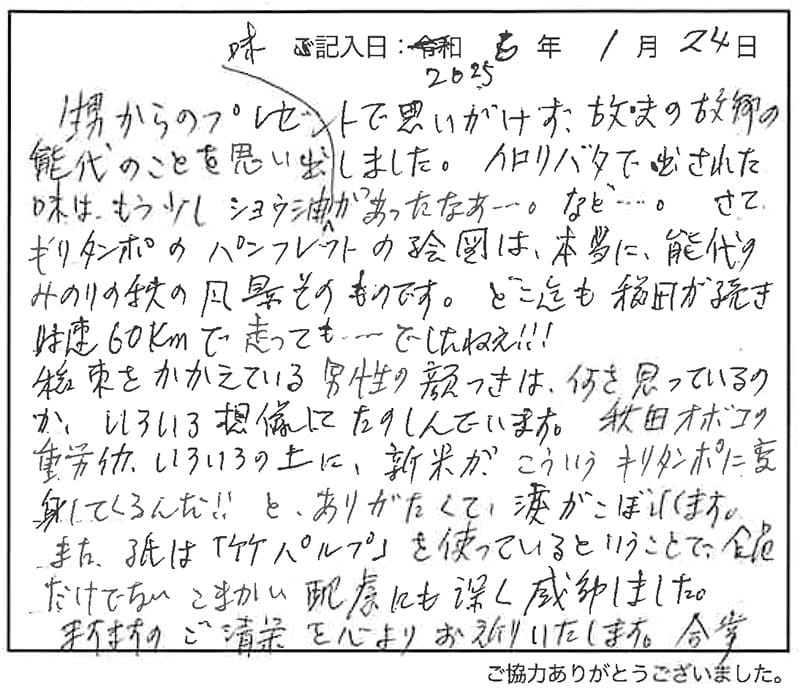 ご記入日:令和 年 1月24日
2025
味
甥からのプレゼントで思いがけず、故夫の故郷の
能代のことを思い出しました。イロリバタで出された
味は、もう少しショウ油があったなあ…。など…。さて
キリタンポのパンフレットの絵図は、本当に、能代の
みのりの秋の風景そのものです。どこ迄も稲田が続き
時速60Kmで走っても……でしたねえ!!!
稲束をかかえている男性の顔つきは、何を思っているの
か、いろいろ想像してたのしんでいます。秋田オボコの
重労働、いろいろの上に、新米が、こういうキリタンポに変
身してくるんだ!!と、ありがたくて、涙がこぼれます。
また、紙は「竹パルプ」を使っているということで、
だけでない こまかい配慮にも深く感動しました。
ますますのご清栄を心よりお祈りいたします。合掌
ご協力ありがとうございました。